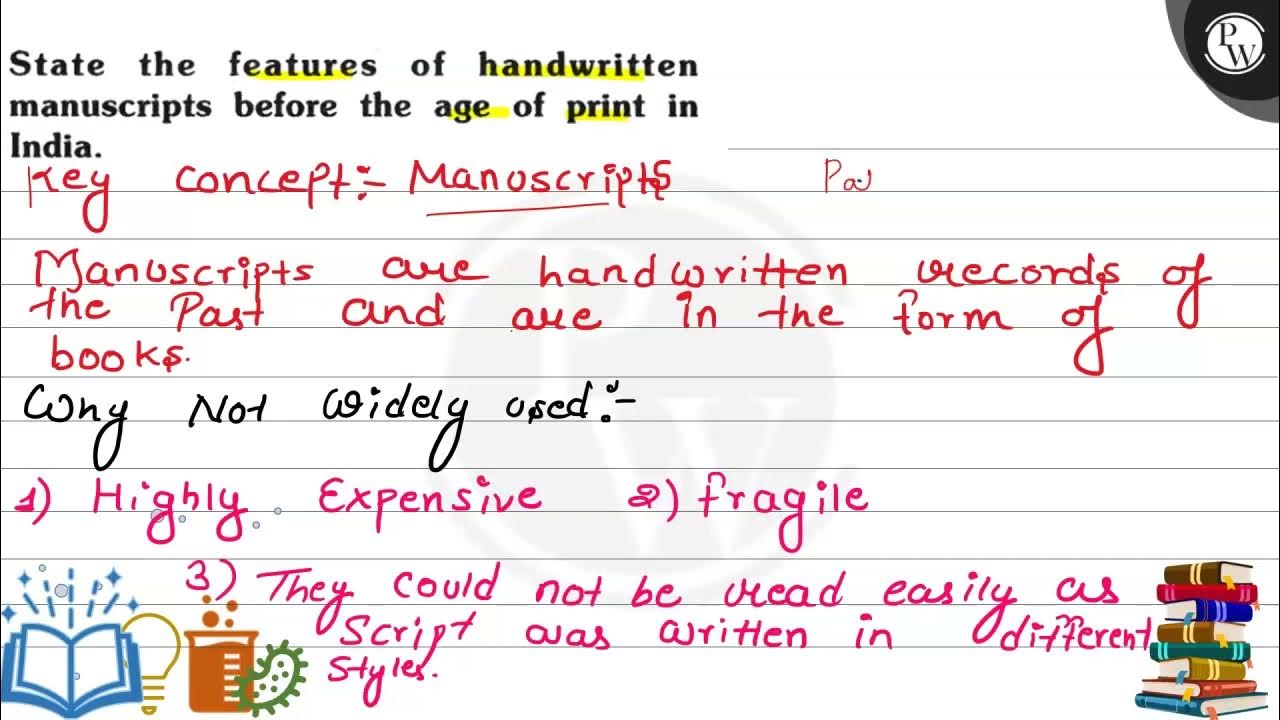 State the features of handwritten
manuscripts before the age of print in
India.
PW
Key concept:- Manuscripts
Manuscripts are handwritten records of
the Past and are in the form of
books.
Why Not Widely used:-
1) Highly Expensive 2) fragile
3) They could not be read easily as
Script was written in different
Styles.
PW